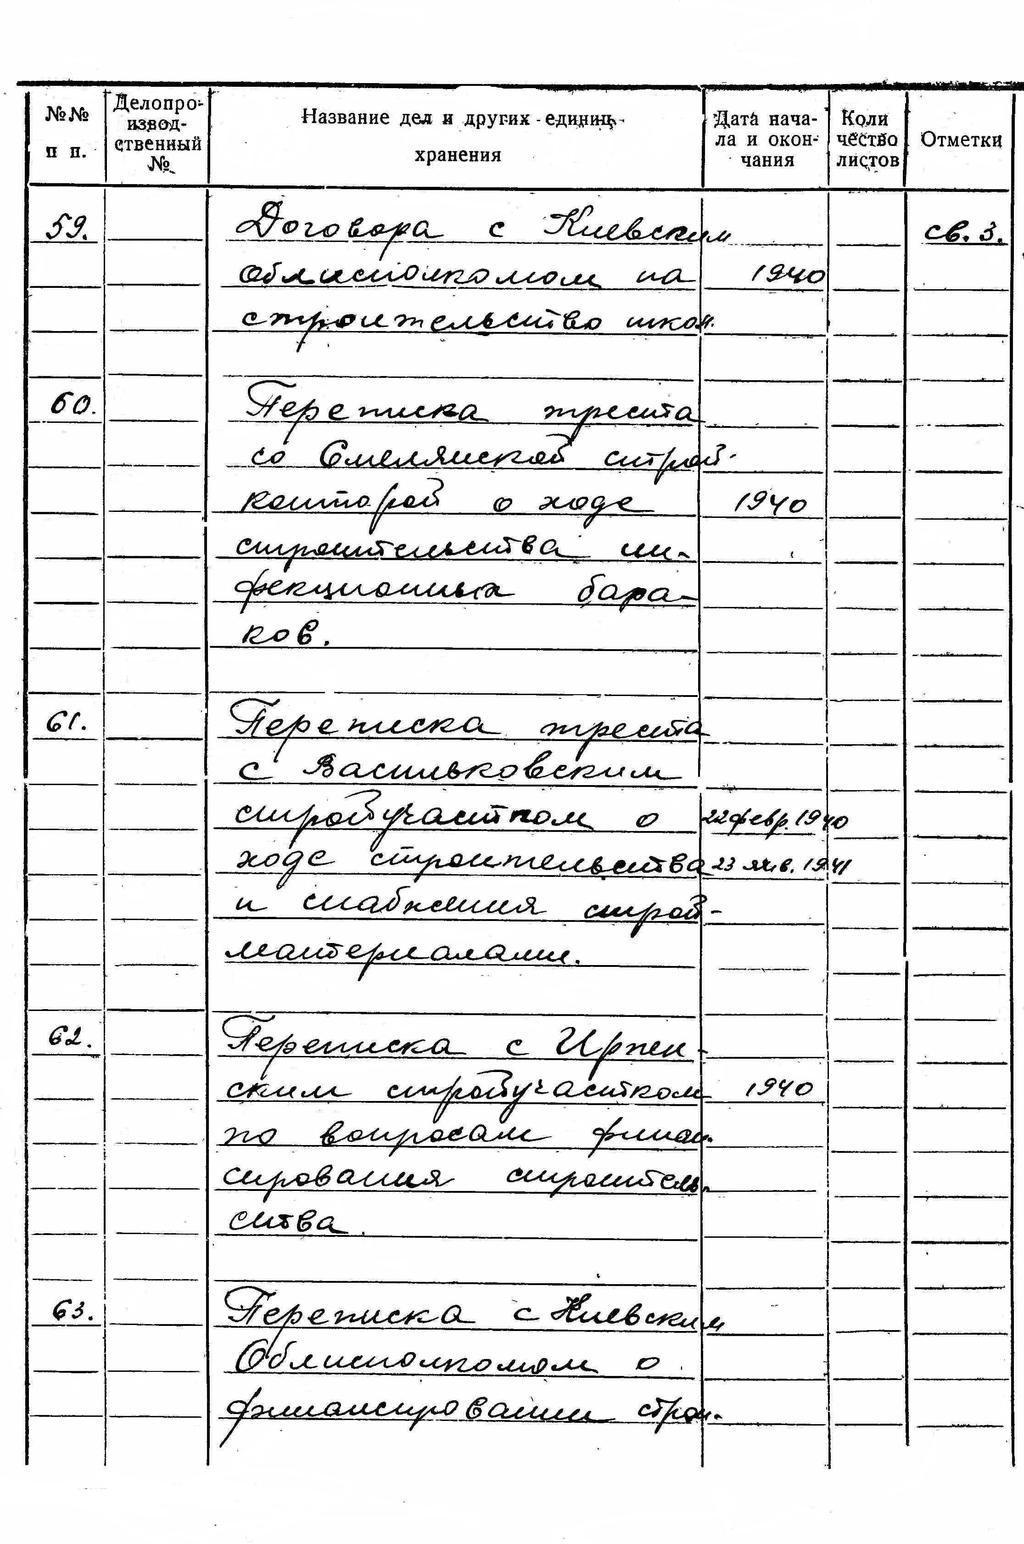 №№ п п.
Делопро-
извод-
ственный
№
Название дел и других единиц
хранения
Дата нача-
ла и окон-
чания
Коли
чество
листов
Отметки
59. Договора с Киевским св. 3.
облисполкомом на 1940
строительство школ.
60. Переписка треста
со Смелянской строй-
конторой о ходе 1940
строительства ин-
фекционных бара-
ков.
61. Переписка треста
с Васильковским
стройучастком о 22 февр. 1940
ходе строительства 23 янв. 1941
и снабжения строй-
материалами.
62. Переписка с Иржен-
ским стройучастком 1940
по вопросам финан-
сирования строитель-
ства.
63. Переписка с Киевским
Облисполкомом о
финансировании строи-